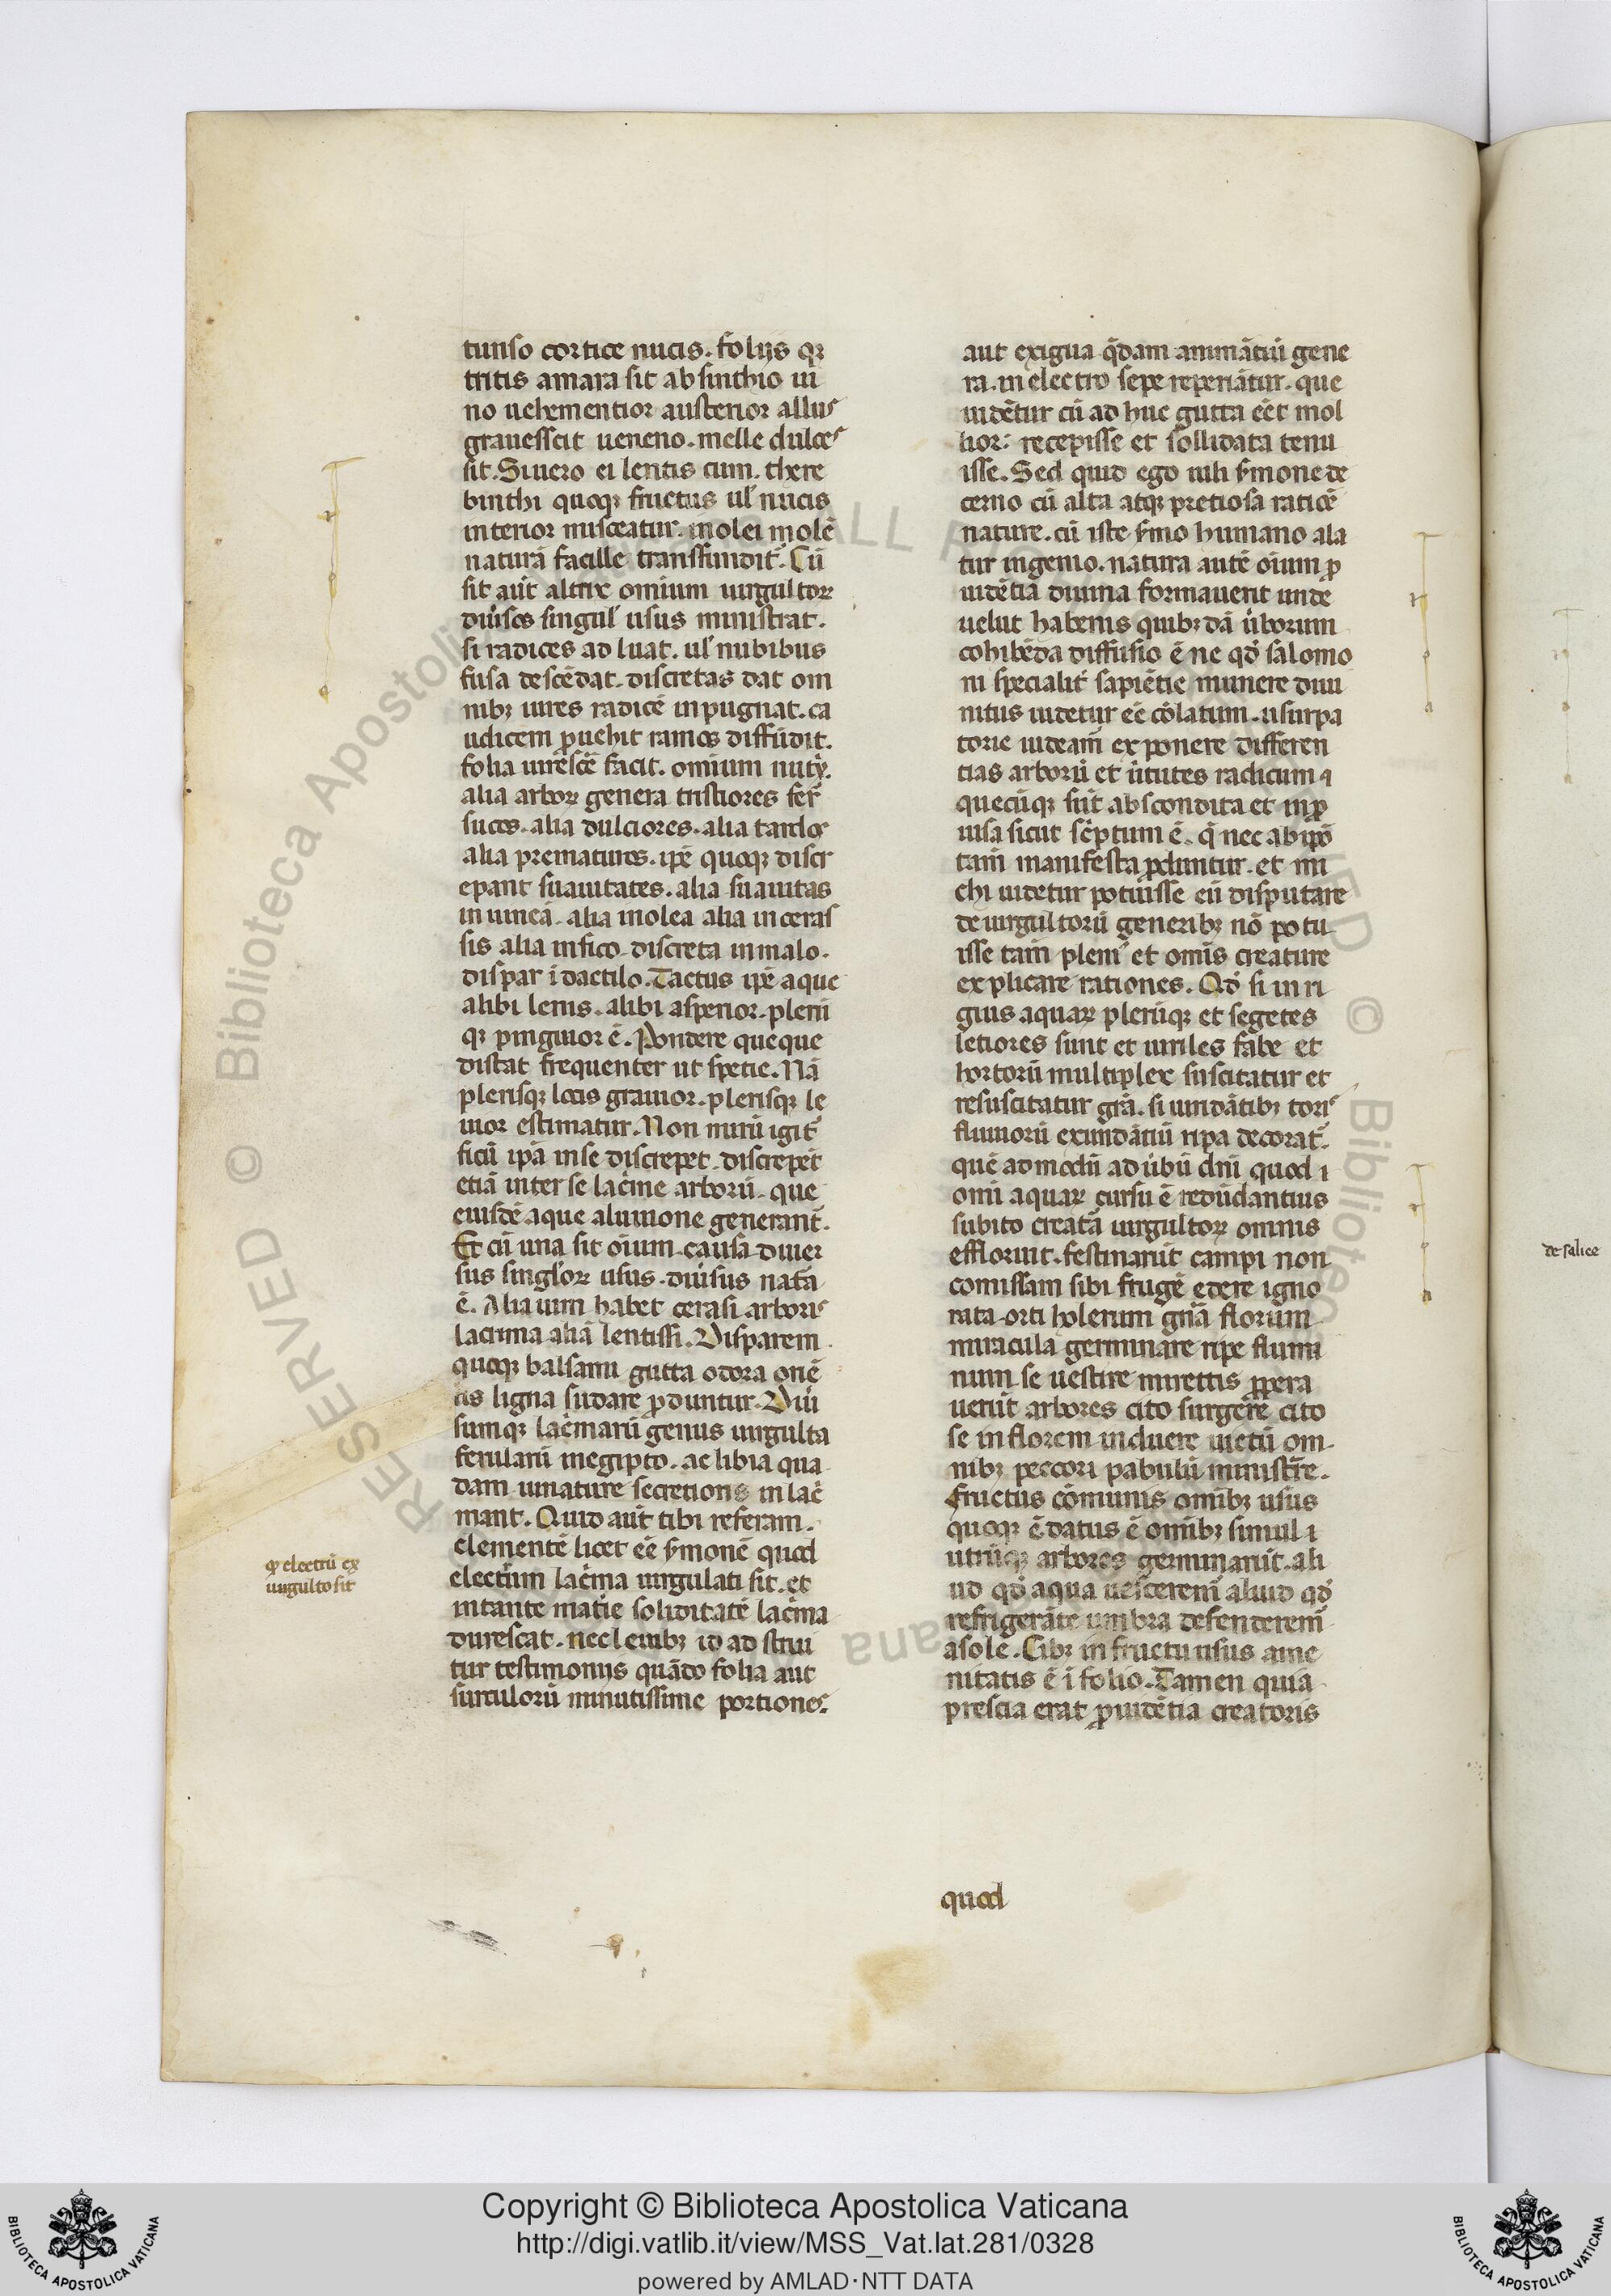 tunso cortice nucis. folijs qꝫ
tritis amara fit absinthio ui
no uehementior austerior allus
grauesscit ueneno. melle dulces
sit. Siuero ei lentis cum. there
binthi quoqꝫ fructus ul' nucis
interior misceatur. inolei molē
naturā facille transfundit᷑. Cū
sit aūt altrix omium uirgultoꝝ
diu͛sos singul' usus ministrat.
si radices ad luat. ul' nubibus
fusa descēdat. discretas dat om
nibꝫ uires radicē inpugnat. ca
udicem ꝓuehit ramos diffūdit.
folia uirescē facit. omium nut᷑.
alia arboꝝ genera tristiores fer͛
sucos. alia dulciores. alia tardos
alia prematuros. ip̄e quoqꝫ discr
epant suauitates. alia suauitas
in uineā. alia inolea alia in ceras
sis alia in fico. discreta in malo.
dispar ī dactilo. Tactus ip̄e aque
alibi lenis. alibi asperior. pleri
qꝫ pinguior ē. Pondere queque
distat frequenter ut spetie. Nā
plerisqꝫ locis grauior. plerisqꝫ le
uior estimatur. Non mirū igit᷑
sicū ip̄a inse discrepet. discrepēt
etiā inter se lac͛me arborū. que
eiusdē aque aluuione generant᷑.
Et cū una sit oīum causa diuer
sus singl'oꝝ usus. diu͛sus nat̄a
ē. Alia uim habet cerasi arboris
lacrima aliā lentissi. Disparem
quoqꝫ balsami gutta odora onē
tis ligna sudare ꝓduntur. Diu͛
sumqꝫ lac͛marū genus uirgulta
ferularū inegipto. ac libia qua
dam uinature secretionis inlac͛
mant. Quid aūt tibi referam.
elementē licet eē s͛monē quod
elect͛um lac͛ma uirgulati sit. et
intante mat͛ie soliditatē lac͛ma
durescat. nec leuibꝫ id ad strui
tur testimonijs quādo folia aut
surculorū minutissime portiones.
qꝙ electrū ex
uirgulto sit
aut exigua q̄dam animātiū gene
ra. in electro sepe reperiātur. que
uidētur cū ad huc gutta eēt mol
lior: recepisse et sollidata tenu
isse. Sed quid ego uili s͛mone de
cerno cū alta atqꝫ pretiosa raticē
nature. cū iste s͛mo humano ala
tur ingenio. natura autē oīum ꝓ
uidētia diuina formauerit unde
uelut habenis quibꝫdā u͛borum
cohibēda diffusio ē ne qđ salomo
ni specialit͛ sapiētie munere diui
nitus uidetur eē cōlatum. usurpa
torie uideam̄ exponere differen
tias arborū et u͛tutes radicum ⁊
quecūqꝫ sūt abscondita et inꝓ
uisa sicut sc͛ptum ē. q̄ nec ab ipō
tam manifesta ꝓduntur. et mi
chi uidetur potuisse eū disputare
de uirgultorū generibꝫ nō potu
isse tam pleni᷑ et omīs creature
explicare rationes. Qđ si in ri
guis aquaꝝ plerūqꝫ et segetes
letiores sunt et uiriles fabe et
hortorū multiplex suscitatur et
resuscitatur grā. si undātibꝫ toris
fluuiorū exundātiū ripa decorat᷑.
quē admodū ad u͛bū dn̄i quod ī
omī aquaꝝ cursu ē redūdantius
subito creatā uirgultoꝝ omnis
effloruit. festinarūt campi non
comissam sibi frugē edere igno
rata. orti holerum gn̄a florum
miracula germinare ripe flumi
num se uestire mirettis ꝓpera
uerūt arbores cito surgere cito
se in florem induere uictū om
nibꝫ peccori pabulū ministr̄e.
fructus cōmunis omībꝫ usus
quoqꝫ ē datus ē omībꝫ simul ī
utrūqꝫ arbores germinarūt. ali
ud qđ aqua uescerem᷑ aliud qđ
refrigerāte umbra defenderem᷑
asole. Cibꝫ in fructu usus ame
nitatis ē ī folio. Tamen quia
prescia erat ꝓuidētia creatoris
quod
de salice
Copyright © Biblioteca Apostolica Vaticana
http://digi.vatlib.it/view/MSS_Vat.lat.281/0328
powered by AMLAD·NTT DATA
BIBLIOTECA APOSTOLICA VATICANA
BIBLIOTECA APOSTOLICA VATICANA